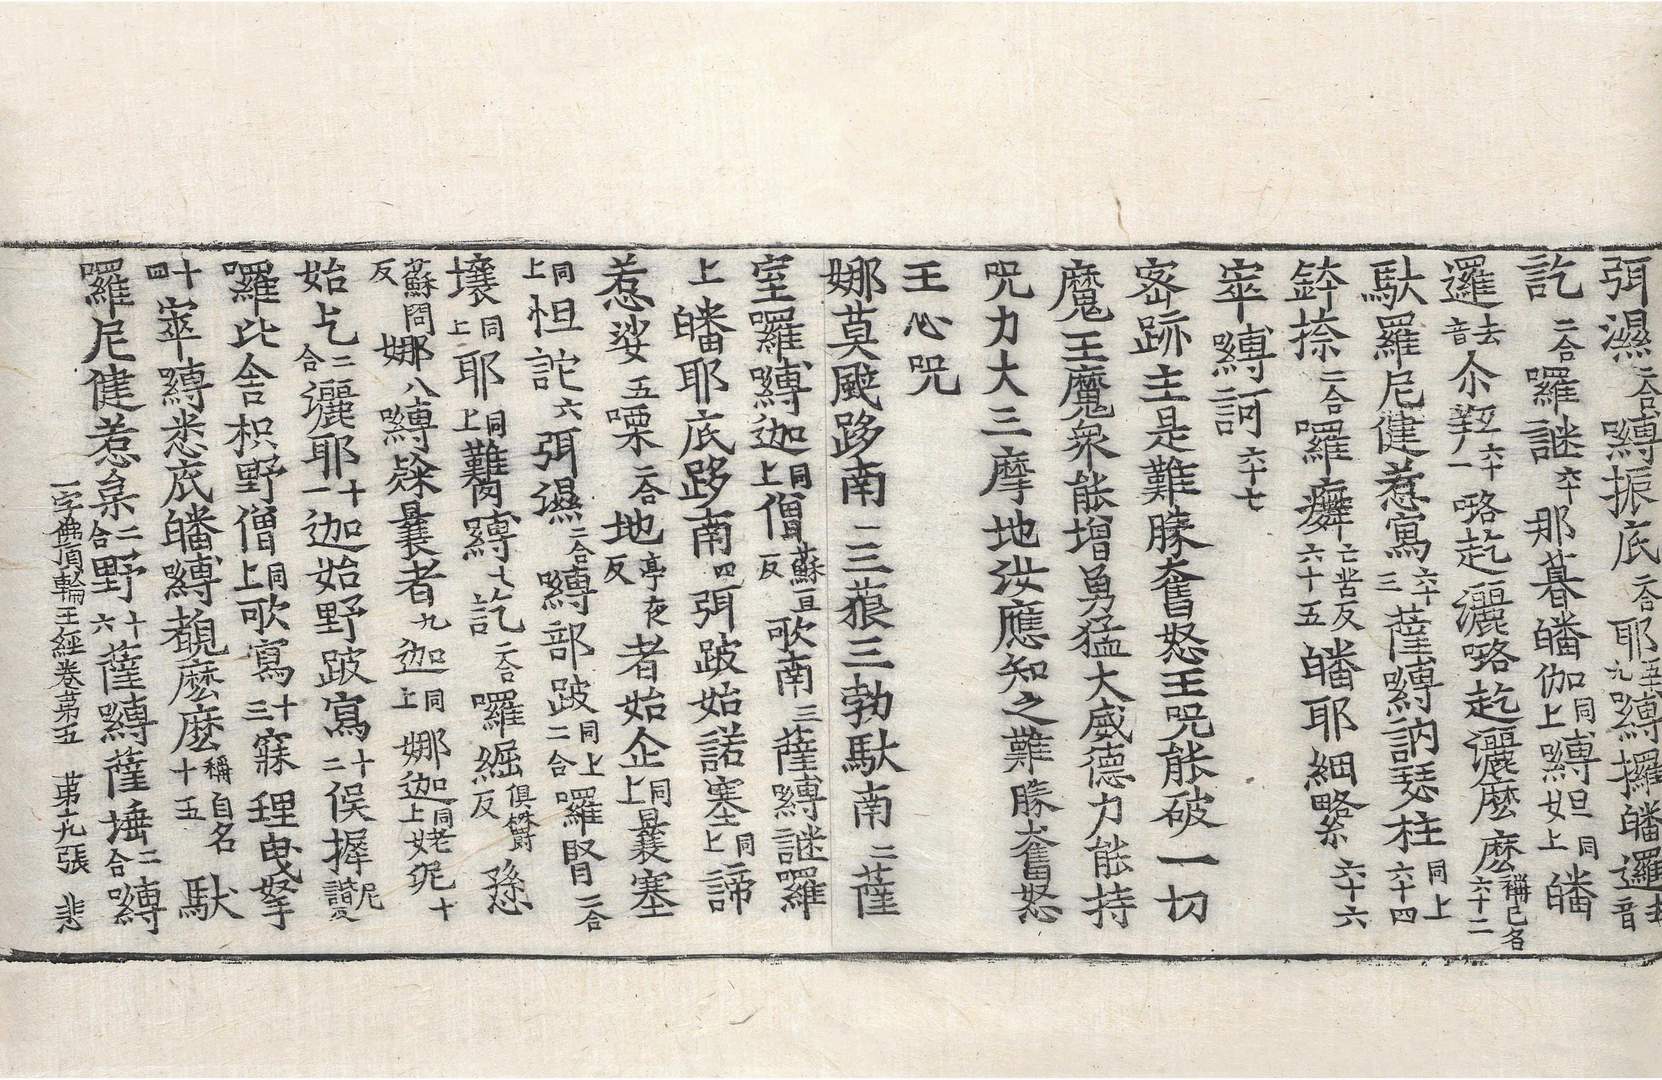 弭濕二合嚩振底二合耶五十九嚩攞皤邏去音
訖二合囉謎六十那暮皤伽上同嚩上女旦上同皤
邏去音尒揅六十一咯訖灑咯訖灑麽麽稱己名六十二
馱羅尼健惹寫六十三薩嚩訥瑟柱同上六十四
鉢捺二合囉癖亡苦反六十五皤耶細略六十六
窣嚩訶六十七
密跡主是難勝奮怒王咒能破一切
魔王魔衆能增勇猛大威德力能持
咒力大三摩地汝應知之難勝奮怒
王心咒
娜莫颰跢南一三蒗三勃馱南二薩
室羅嚩迦同上僧蘇亘反歌南三薩嚩謎羅
上皤耶底跢南四弭跛始諾塞同上諦
惹娑五㗚二合地亭夜反者始企同上曩塞
同上怛詑六弭濕二合嚩部跛同上二合羅腎二合
壤同上耶同上難嚩七訖二合囉縀俱鬱反殟
蘇悶反娜八嚩㷟曩者九迦同上娜迦同上女昵十
始乞二合灑耶十一迦始野跛寫十二俟捤尼證反
囉比舍枳野僧同上歌寫十三寐理曳拏
十四窣嚩悉底皤嚩覩麽麽稱自名十五馱
囉尼健惹枲二合野十六薩嚩薩埵二合嚩
一字佛頂輪王經卷第五　第十九張　悲